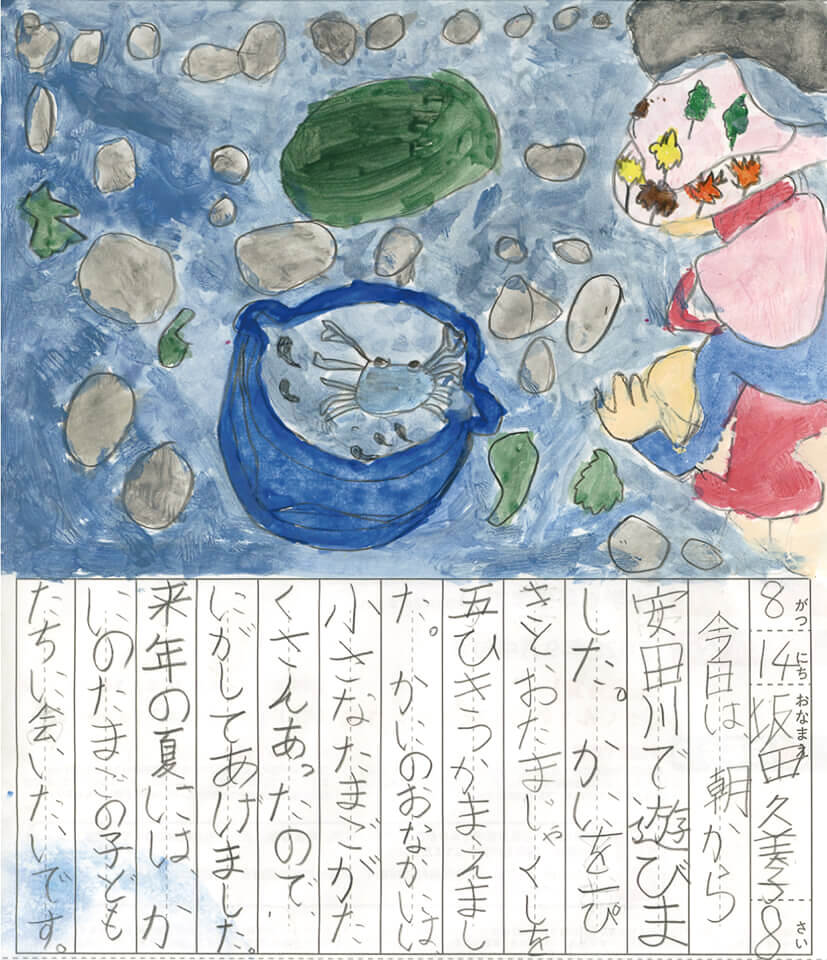 8がつ14にち おなまえ 坂田久美子 8さい
今日は、朝から
安田川で遊びま
した。かにを一ぴ
きと、おたまじゃくしを
五ひきつかまえまし
た。かにのおなかには、
小さなたまごがた
くさんあったので、
にがしてあげました。
来年の夏には、か
にのたまごの子ども
たちに会いたいです。